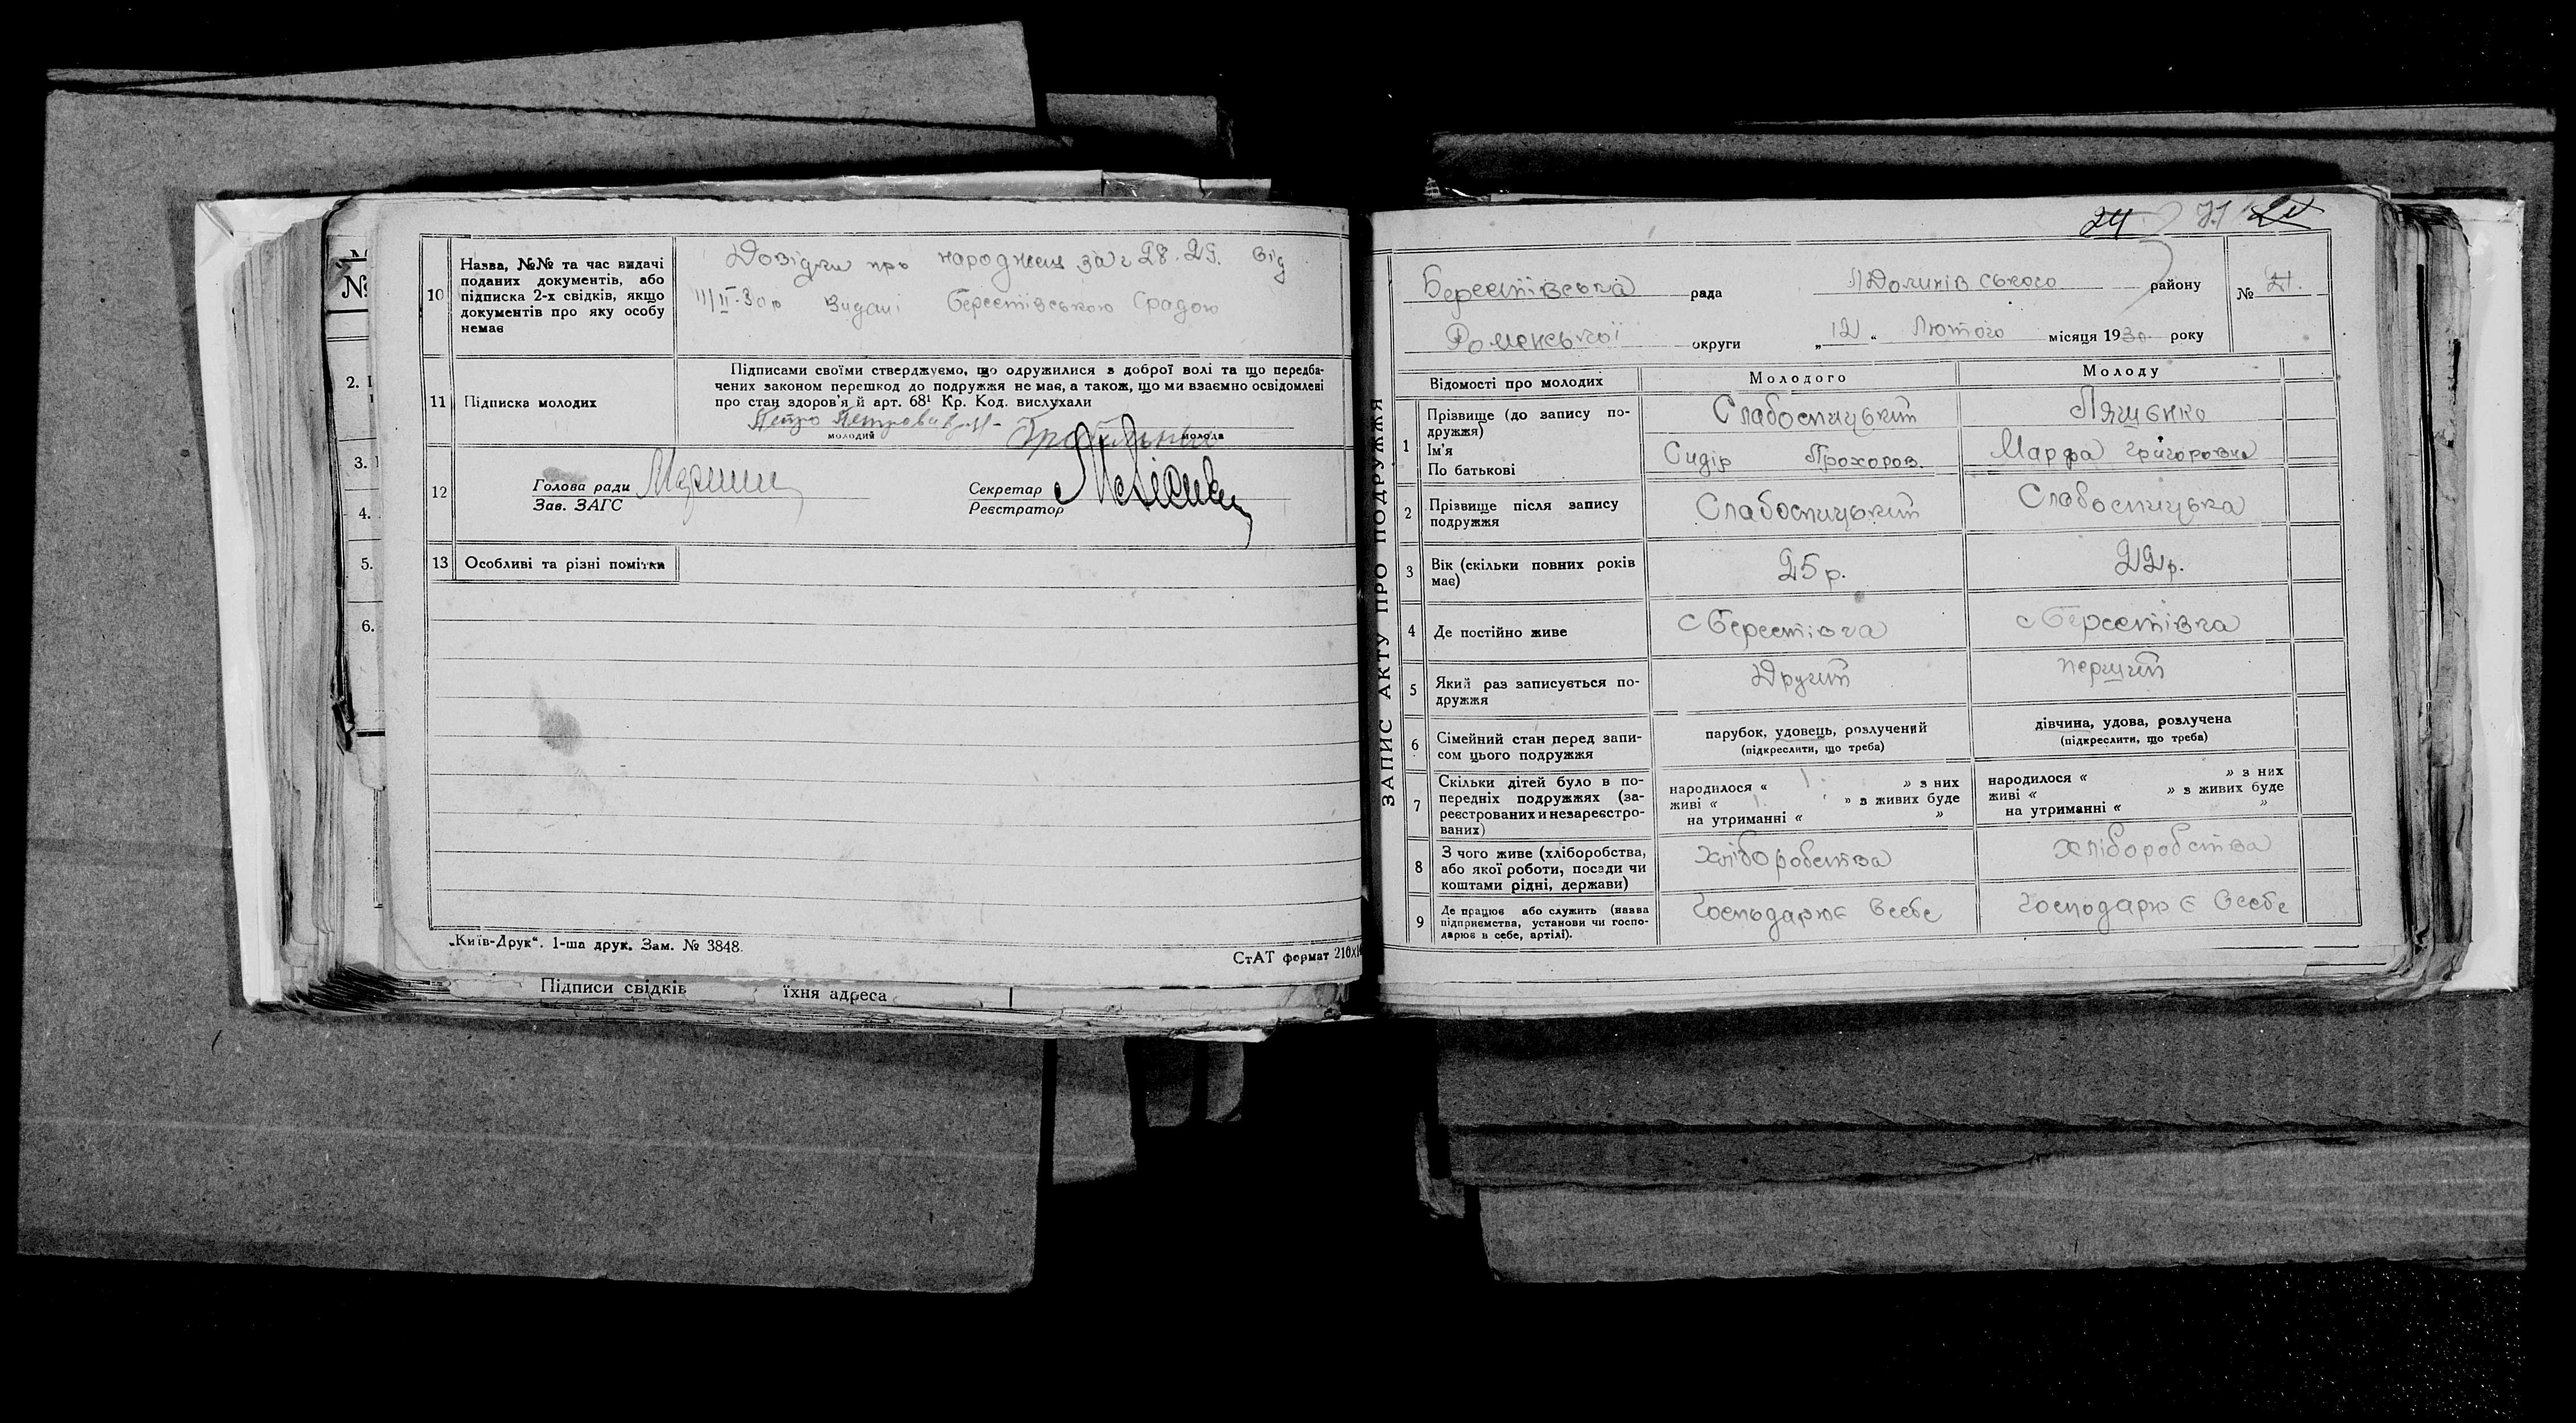 10
Назва, №№ та час видачі
поданих документів, або
підписка 2-х свідків, якщо
документів про яку особу
немає
Довідки про народжен за № 28.29. від
11/II-30р Видані Берестівською Срадою
11
Підписка молодих
Підписами своїми стверджуємо, що одружилися з доброї волі та що передба-
чених законом перешкод до подружжя не має, а також, що ми взаємно освідомлені
про стан здоров'я й арт. 68¹ Кр. Код. вислухали
Петро Петрова
молодий
молода
12
Голова ради
Зав. ЗАГС
Секретар
Реєстратор
13
Особливі та різні помітки
„Київ-Друк“. 1-ша друк. Зам. № 3848.
СтАТ формат 210х
Підписи свідків
їхня адреса
№
2.
3.
4.
5.
6.
24
ЗАПИС АКТУ ПРО ПОДРУЖЖЯ
Берестівська рада
Долинівського району
№ 21.
Роменської округи
„12“ Лютого місяця 1930 року
Відомості про молодих
Молодого
Молоду
1
Прізвище (до запису по-
дружжя)
Ім'я
По батькові
Слабоспицький
Сидір Прохоров.
Ляшенко
Марфа Григоровна
2
Прізвище після запису
подружжя
Слабоспицький
Слабоспицька
3
Вік (скільки повних років
має)
25р.
22р.
4
Де постійно живе
с Берестівка
с Берестівка
5
Який раз записується по-
дружжя
Другий
перший
6
Сімейний стан перед запи-
сом цього подружжя
парубок, удовець, розлучений
(підкреслити, що треба)
дівчина, удова, розлучена
(підкреслити, що треба)
7
Скільки дітей було в по-
передніх подружжях (за-
реєстрованих и незареєстро-
ваних)
народилося « 1 » з них
живі « 1 » з живих буде
на утриманні « »
народилося « » з них
живі « » з живих буде
на утриманні « »
8
З чого живе (хліборобства,
або якої роботи, посади чи
коштами рідні, держави)
Хліборобства
хліборобства
9
Де працює або служить (назва
підприємства, установи чи госпо-
дарює в себе, артілі).
Господарює Всебе
Господарює Всебе